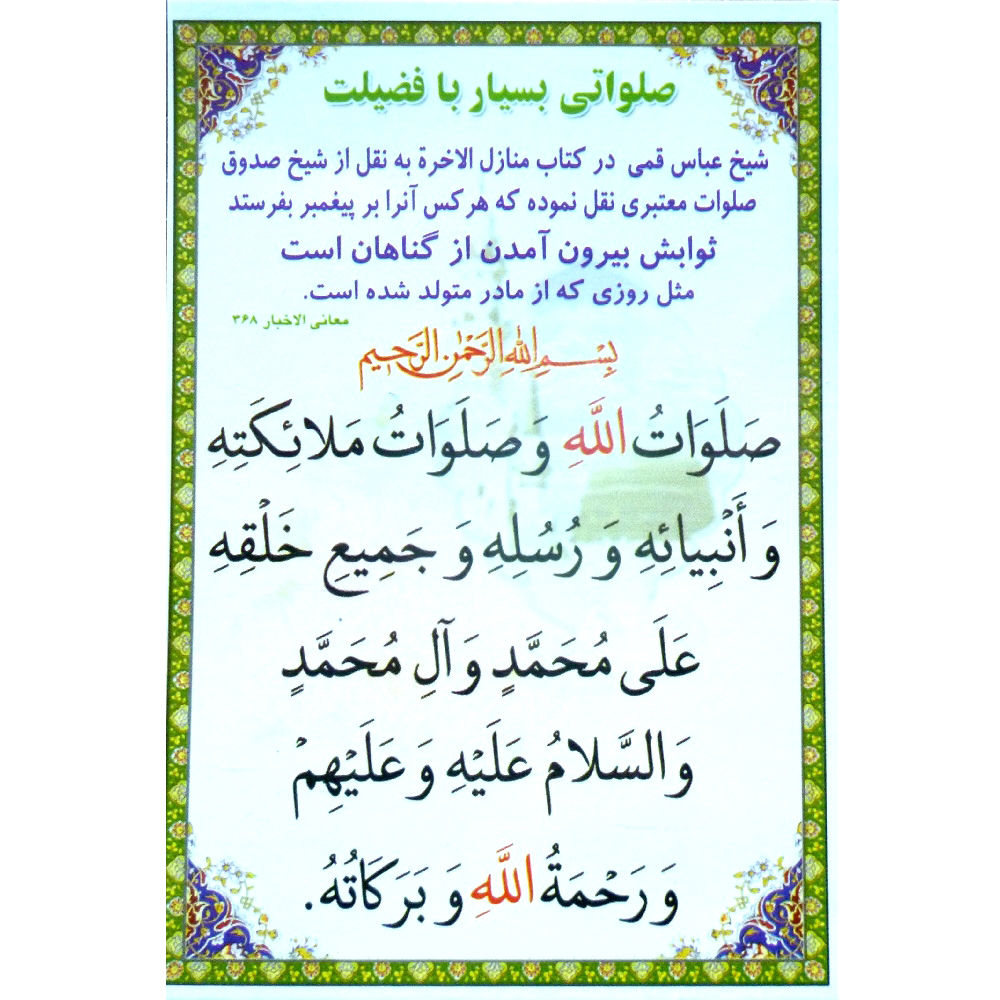 صلواتی بسیار با فضیلت
شیخ عباس قمی در کتاب منازل الاخرة به نقل از شیخ صدوق
صلوات معتبری نقل نموده که هر کس آنرا بر پیغمبر بفرستد
ثوابش بیرون آمدن از گناهان است
مثل روزی که از مادر متولد شده است.
معانی الاخبار ۳۶۸
بِسْمِ اللهِ الرَّحْمٰنِ الرَّحیمِ
صَلَوَاتُ اللَّهِ وَ صَلَوَاتُ مَلائِكَتِهِ
وَ أَنْبِيائِهِ وَ رُسُلِهِ وَ جَمِيعِ خَلْقِهِ
عَلَى مُحَمَّدٍ وَ آلِ مُحَمَّدٍ
وَ السَّلامُ عَلَيْهِ وَ عَلَيْهِمْ
وَ رَحْمَةُ اللَّهِ وَ بَرَكَاتُهُ.